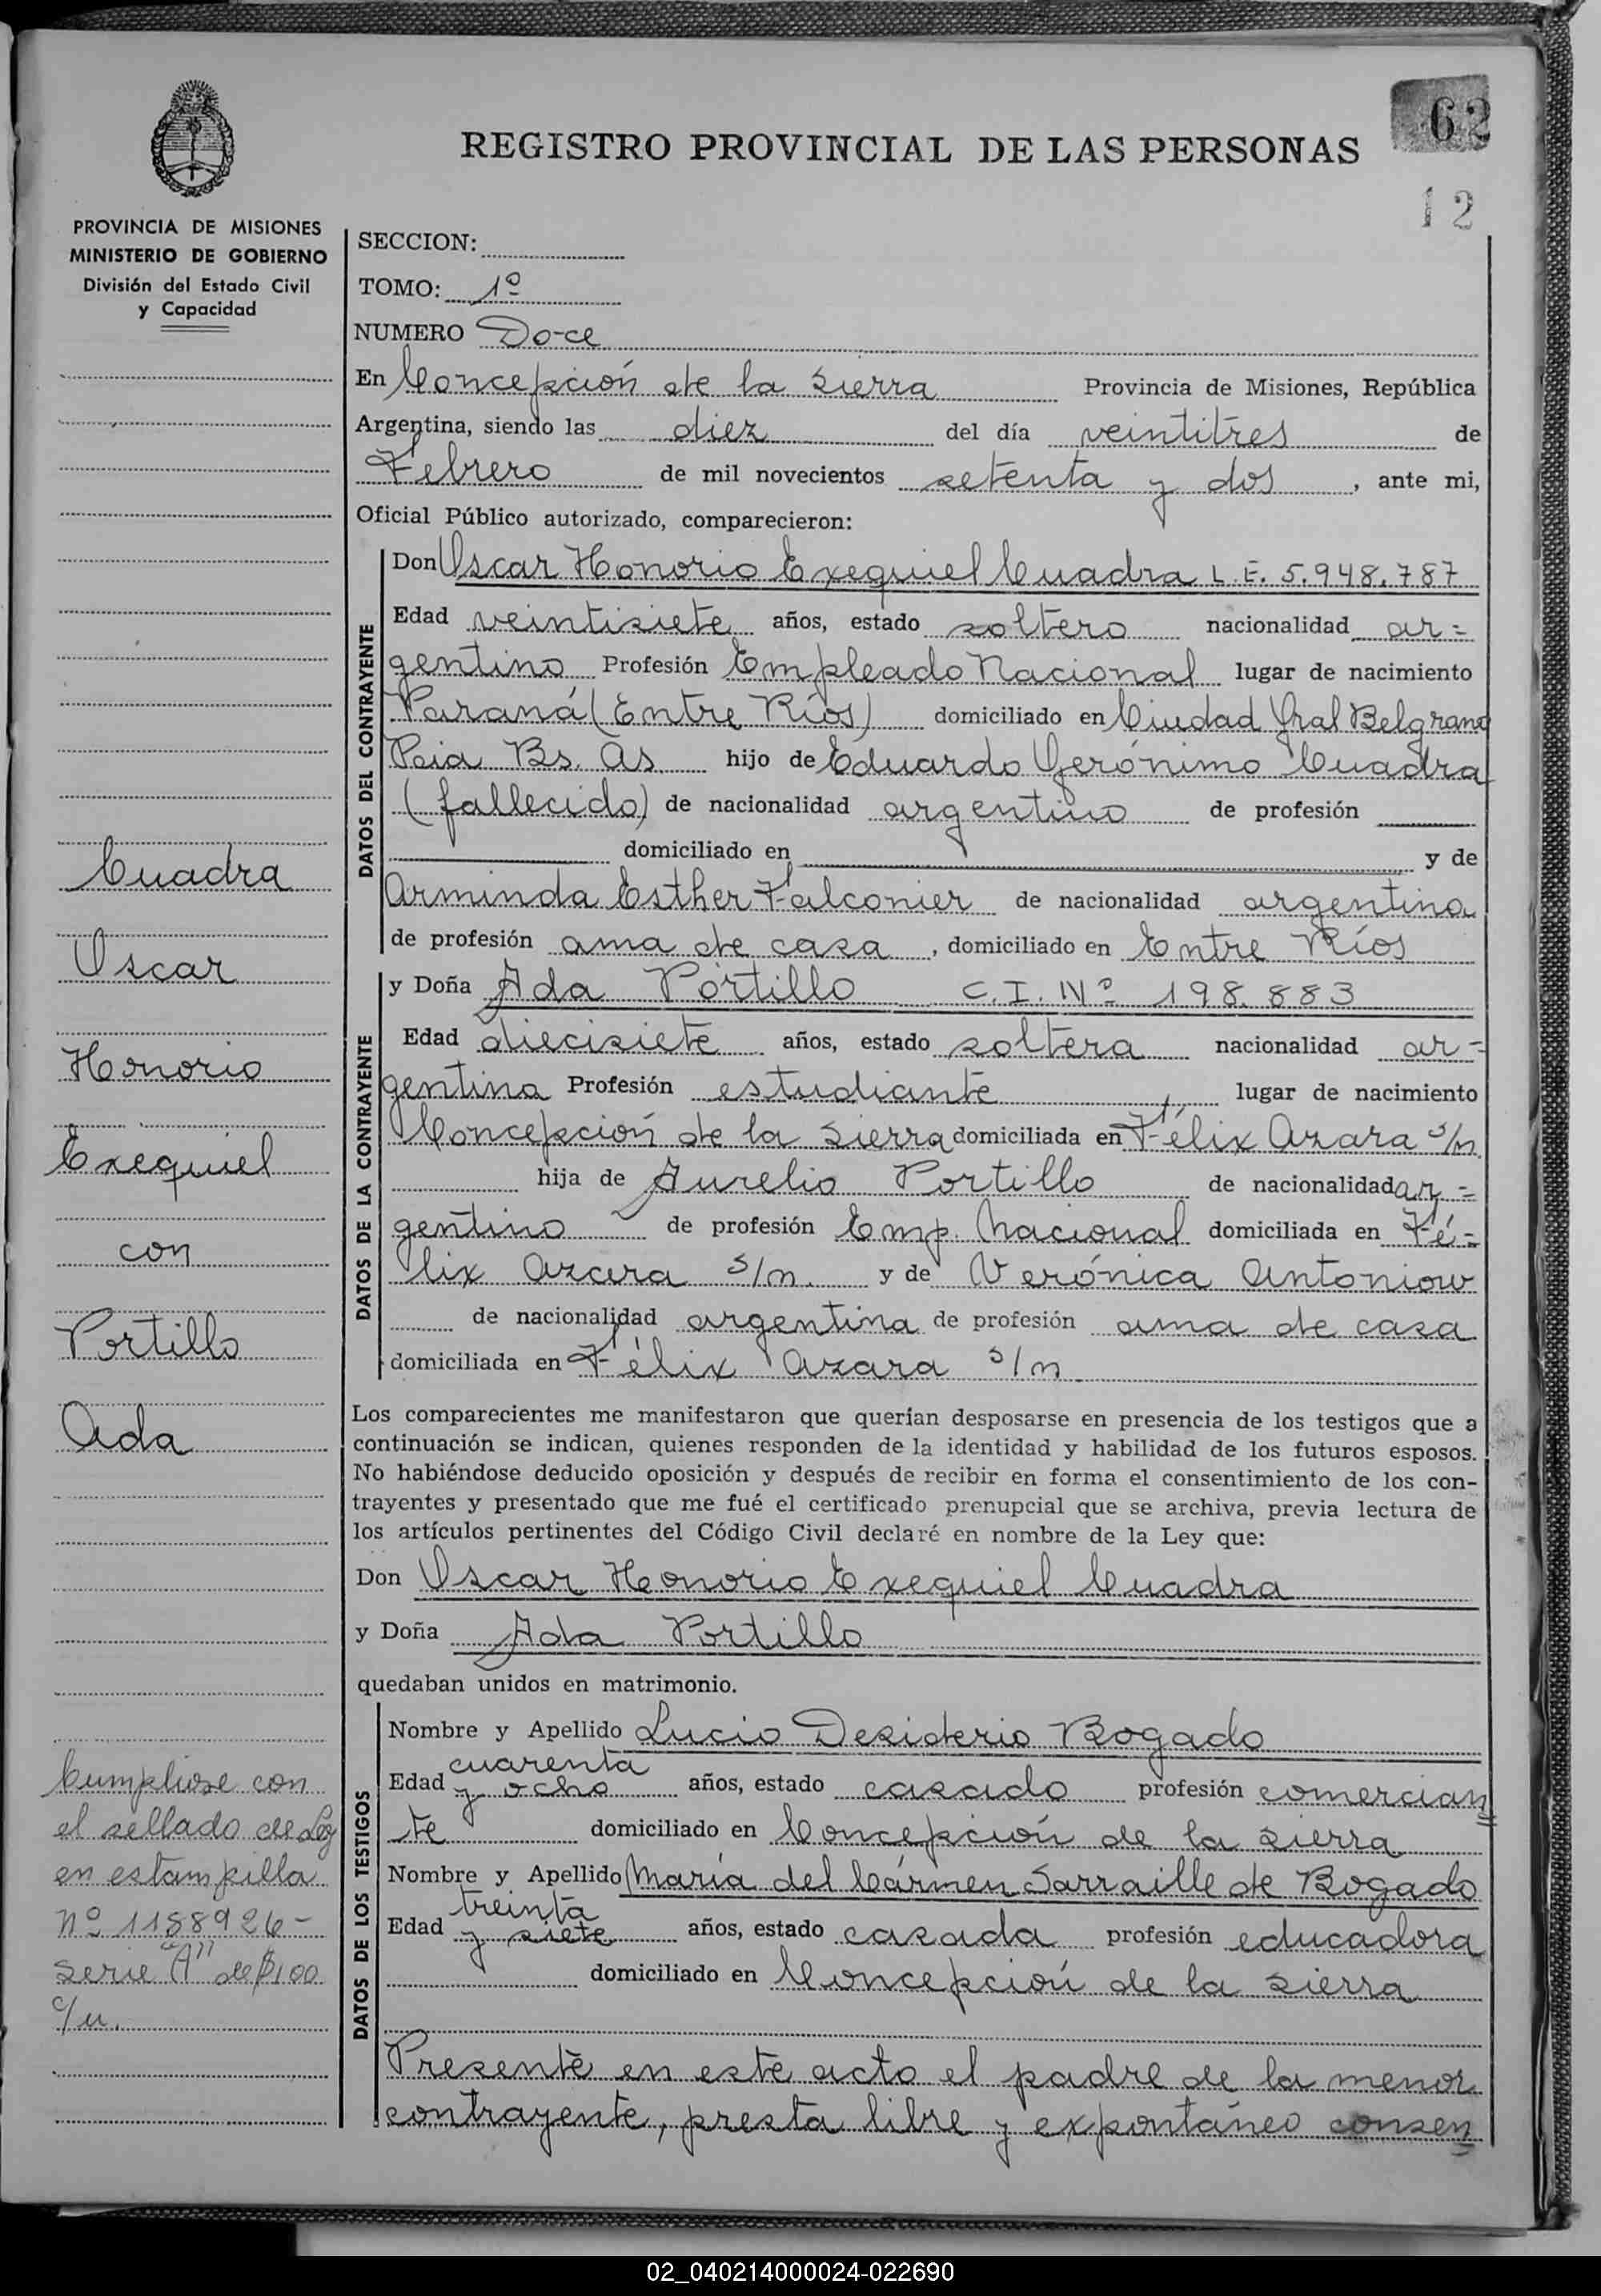 62
REGISTRO PROVINCIAL DE LAS PERSONAS
12
PROVINCIA DE MISIONES
MINISTERIO DE GOBIERNO
División del Estado Civil
y Capacidad
SECCION:
TOMO: 1º
NUMERO Doce
En Concepción de la Sierra Provincia de Misiones, República
Argentina, siendo las diez del día veintitres de
Febrero de mil novecientos setenta y dos, ante mi,
Oficial Público autorizado, comparecieron:
DATOS DEL CONTRAYENTE
Don Oscar Honorio Exequiel Cuadra L.E. 5.948.787
Edad veintisiete años, estado soltero nacionalidad ar=
gentino Profesión Empleado Nacional lugar de nacimiento
Paraná (Entre Ríos) domiciliado en Ciudad Gral Belgrano
Pcia Bs. As. hijo de Eduardo Gerónimo Cuadra
(fallecido) de nacionalidad argentino de profesión
domiciliado en y de
Arminda Esther Falconier de nacionalidad argentina
de profesión ama de casa, domiciliado en Entre Ríos
DATOS DE LA CONTRAYENTE
y Doña Ada Portillo C.I. Nº 198.883
Edad diecisiete años, estado soltera nacionalidad ar=
gentina Profesión estudiante lugar de nacimiento
Concepción de la Sierra domiciliada en Félix Azara s/n
hija de Aurelio Portillo de nacionalidad ar=
gentino de profesión Emp. Nacional domiciliada en Fé=
lix Azara s/n. y de Verónica Antoniow
de nacionalidad argentina de profesión ama de casa
domiciliada en Félix Azara s/n
Los comparecientes me manifestaron que querían desposarse en presencia de los testigos que a
continuación se indican, quienes responden de la identidad y habilidad de los futuros esposos.
No habiéndose deducido oposición y después de recibir en forma el consentimiento de los con-
trayentes y presentado que me fué el certificado prenupcial que se archiva, previa lectura de
los artículos pertinentes del Código Civil declaré en nombre de la Ley que:
Don Oscar Honorio Exequiel Cuadra
y Doña Ada Portillo
quedaban unidos en matrimonio.
DATOS DE LOS TESTIGOS
Nombre y Apellido Lucio Desiderio Bogado
Edad cuarenta y ocho años, estado casado profesión comercian
te domiciliado en Concepción de la Sierra
Nombre y Apellido María del Cármen Sarraille de Bogado
Edad treinta y siete años, estado casada profesión educadora
domiciliado en Concepción de la Sierra
Presente en este acto el padre de la menor
contrayente, presta libre y expontáneo consen
Cuadra
Oscar
Honorio
Exequiel
con
Portillo
Ada
Cumpliose con
el sellado de Ley
en estampilla
nº 1188926-
serie "A" de $100
c/u.
02_040214000024-022690